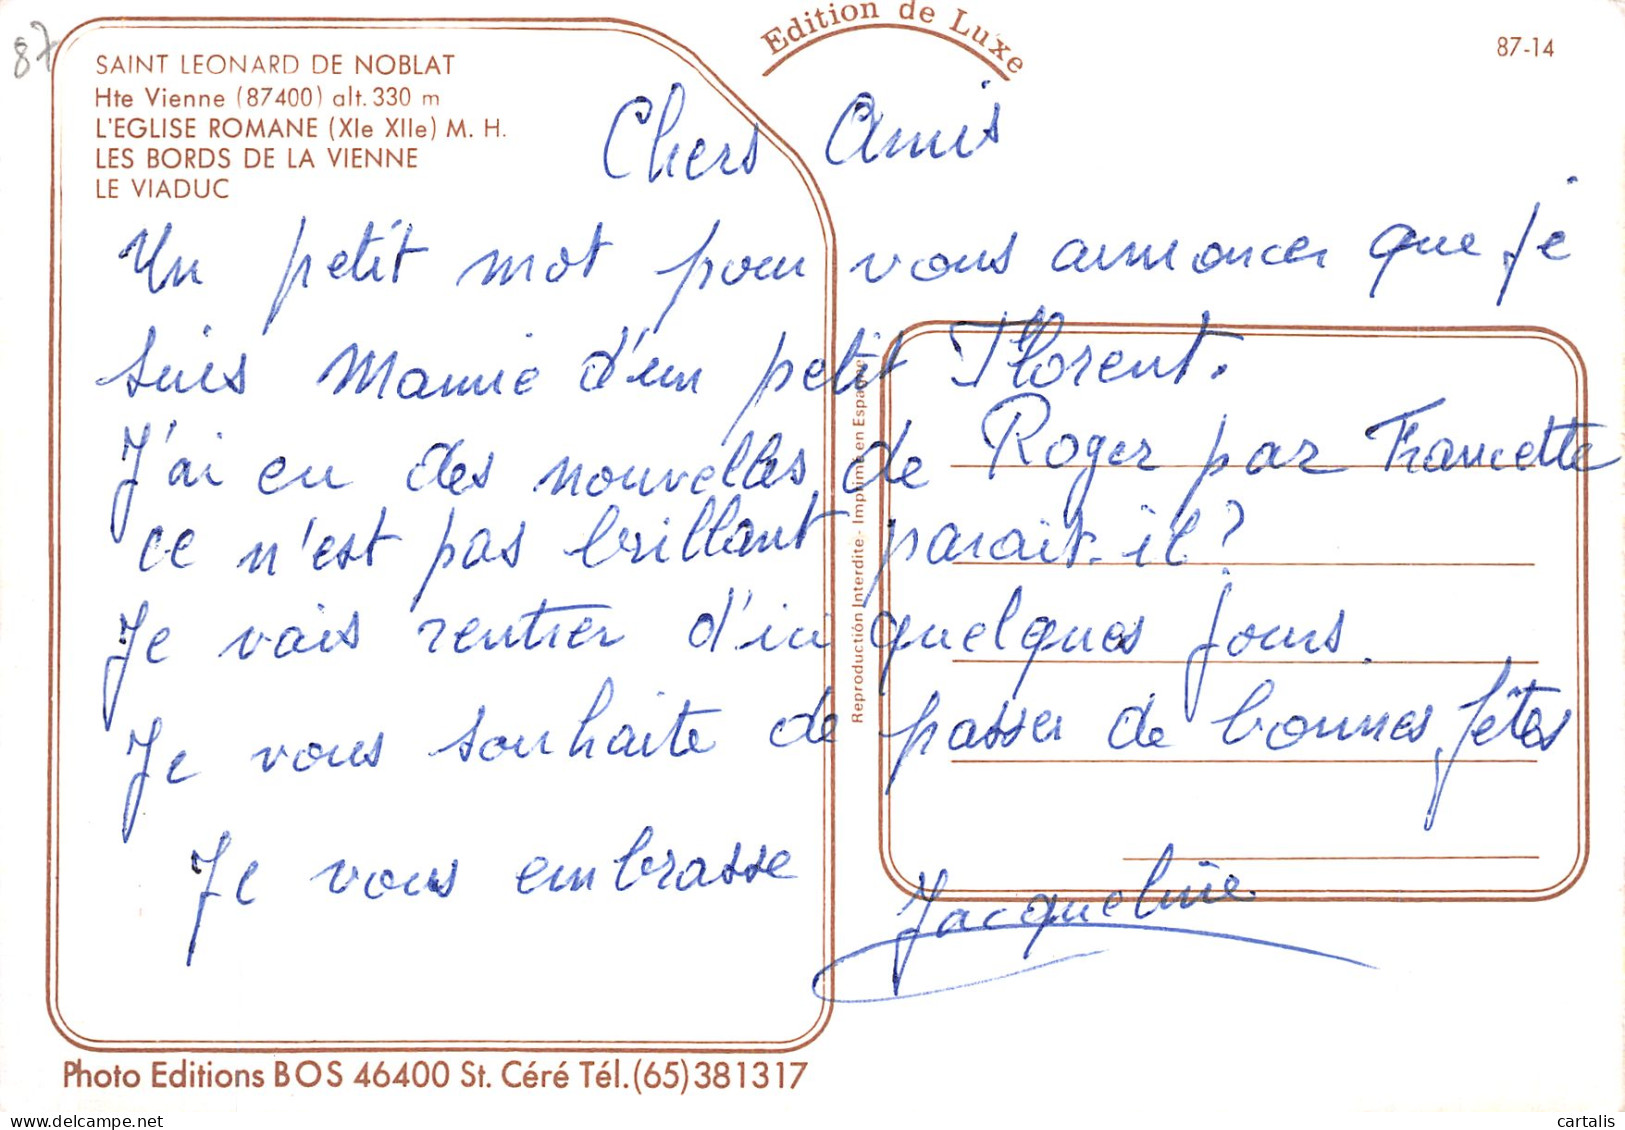 87
Edition de Luxe
87-14
SAINT LEONARD DE NOBLAT
Hte Vienne (87400) alt. 330 m
L'EGLISE ROMANE (XIe XIIe) M. H.
LES BORDS DE LA VIENNE
LE VIADUC
Chers Amis
Un petit mot pour vous annoncer que je
suis Mamie d'un petit Florent.
J'ai eu des nouvelles de Roger par Francette
ce n'est pas brillant parait-il?
Je vais rentrer d'ici quelques jours.
Je vous souhaite de passer de bonnes fêtes
Je vous embrasse
Jacqueline
Reproduction Interdite - Imprimé en Espagne
Photo Editions BOS 46400 St. Céré Tél.(65)381317
cartalis